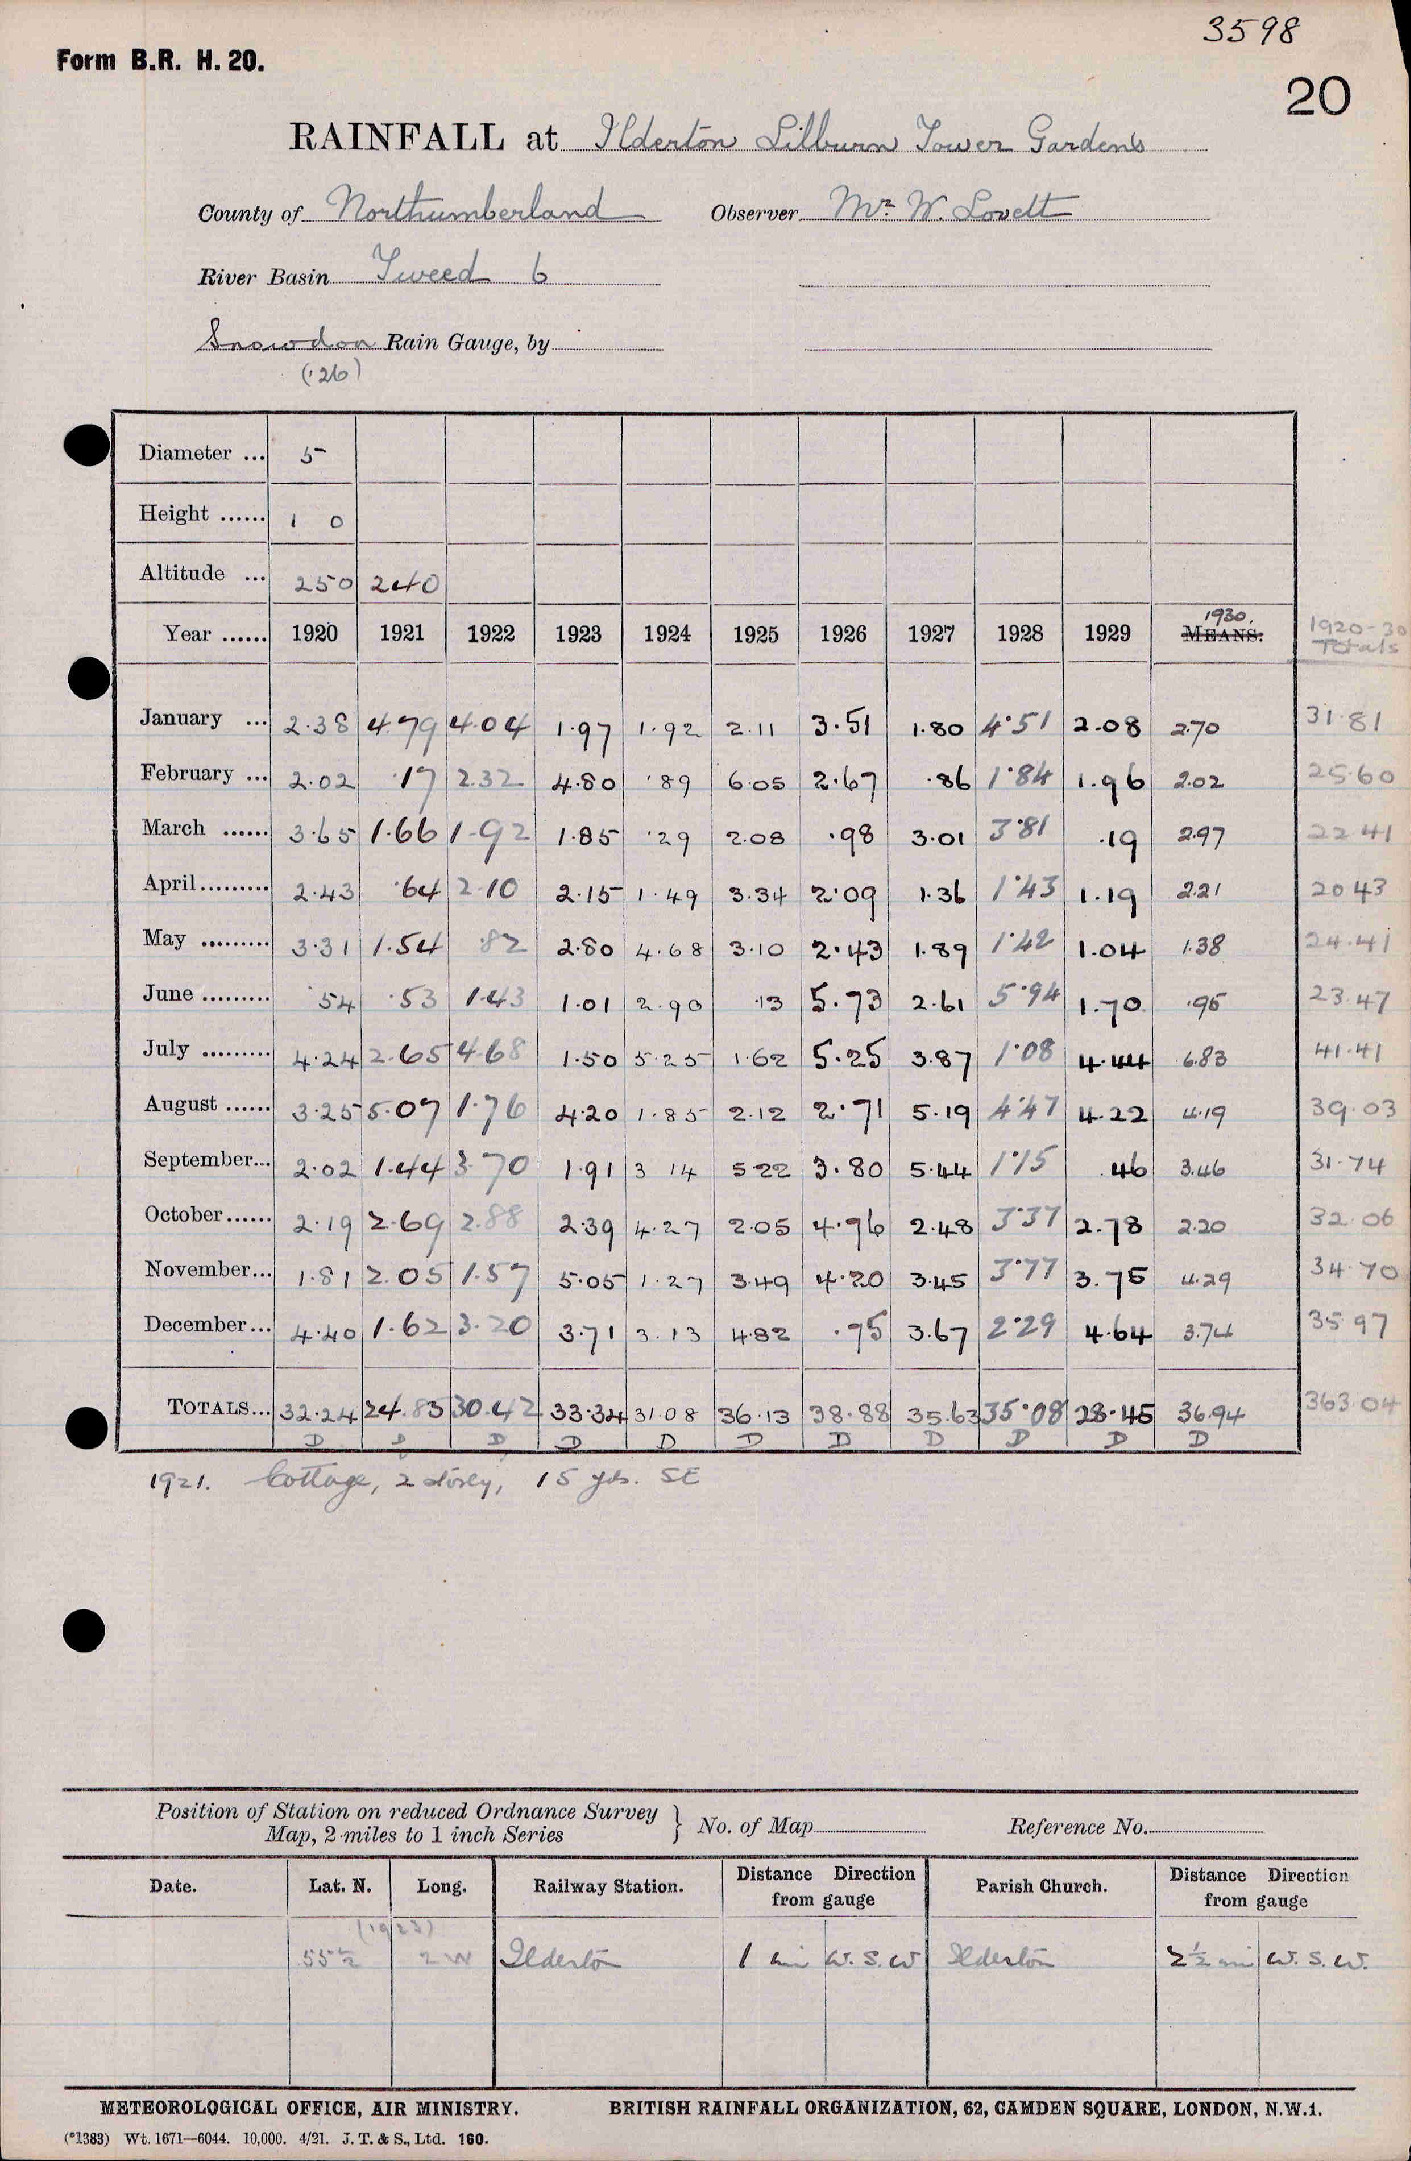 3598
Form B.R. H. 20.
20
RAINFALL at Ilderton Lilburn Tower Gardens
County of Northumberland Observer Mr. W. Lovett
River Basin Tweed 6
Snowdon Rain Gauge, by
('26)
Diameter ... 5
Height ...... 1 0
Altitude ... 250 240
1930.
Year ...... 1920 1921 1922 1923 1924 1925 1926 1927 1928 1929 MEANS. 1920-30 Totals
January ... 2.38 4.79 4.04 1.97 1.92 2.11 3.51 1.80 4.51 2.08 2.70 31.81
February ... 2.02 .17 2.32 4.80 .89 6.05 2.67 .86 1.84 1.96 2.02 25.60
March ...... 3.65 1.66 1.92 1.85 .29 2.08 .98 3.01 3.81 .19 2.97 22.41
April......... 2.43 .64 2.10 2.15 1.49 3.34 2.09 1.36 1.43 1.19 2.21 20.43
May ......... 3.31 1.54 .82 2.80 4.68 3.10 2.43 1.89 1.42 1.04 1.38 24.41
June ......... .54 .53 1.43 1.01 2.90 .13 5.73 2.61 5.94 1.70 .95 23.47
July ......... 4.24 2.65 4.68 1.50 5.25 1.62 5.25 3.87 1.08 4.44 6.83 41.41
August ...... 3.25 5.07 1.76 4.20 1.85 2.12 2.71 5.19 4.47 4.22 4.19 39.03
September... 2.02 1.44 3.70 1.91 3 14 5.22 3.80 5.44 1.15 .46 3.46 31.74
October...... 2.19 2.69 2.88 2.39 4.27 2.05 4.96 2.48 3.37 2.78 2.20 32.06
November... 1.81 2.05 1.57 5.05 1.27 3.49 4.20 3.45 3.77 3.75 4.29 34.70
December... 4.40 1.62 3.20 3.71 3.13 4.82 .75 3.67 2.29 4.64 3.74 35.97
TOTALS... 32.24 24.85 30.42 33.34 31.08 36.13 38.88 35.63 35.08 28.45 36.94 363.04
D D D D D D D D D D D
1921. Cottage, 2 storey, 15 yds. SE
Position of Station on reduced Ordnance Survey
Map, 2 miles to 1 inch Series } No. of Map Reference No.
Date. Lat. N. Long. Railway Station. Distance Direction from gauge Parish Church. Distance Direction from gauge
(1923)
55½ 2 W Ilderton 1 mi W. S. W Ilderton 2½ mi W. S. W.
METEOROLOGICAL OFFICE, AIR MINISTRY. BRITISH RAINFALL ORGANIZATION, 62, CAMDEN SQUARE, LONDON, N.W.1.
(*1383) Wt. 1671—6044. 10,000. 4/21. J. T. & S., Ltd. 160.